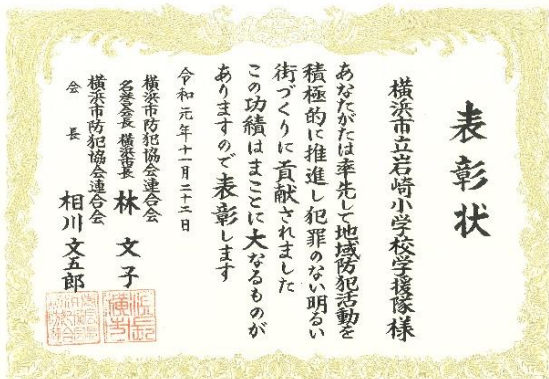 表彰状
横浜市立岩崎小学校学援隊様
あなたがたは率先して地域防犯活動を
積極的に推進し犯罪のない明るい
街づくりに貢献されました
この功績はまことに大なるものが
ありますので表彰します
令和元年十一月二十二日
横浜市防犯協会連合会
名誉会長 横浜市長 林文子
横浜市防犯協会連合会
会長 相川文五郎